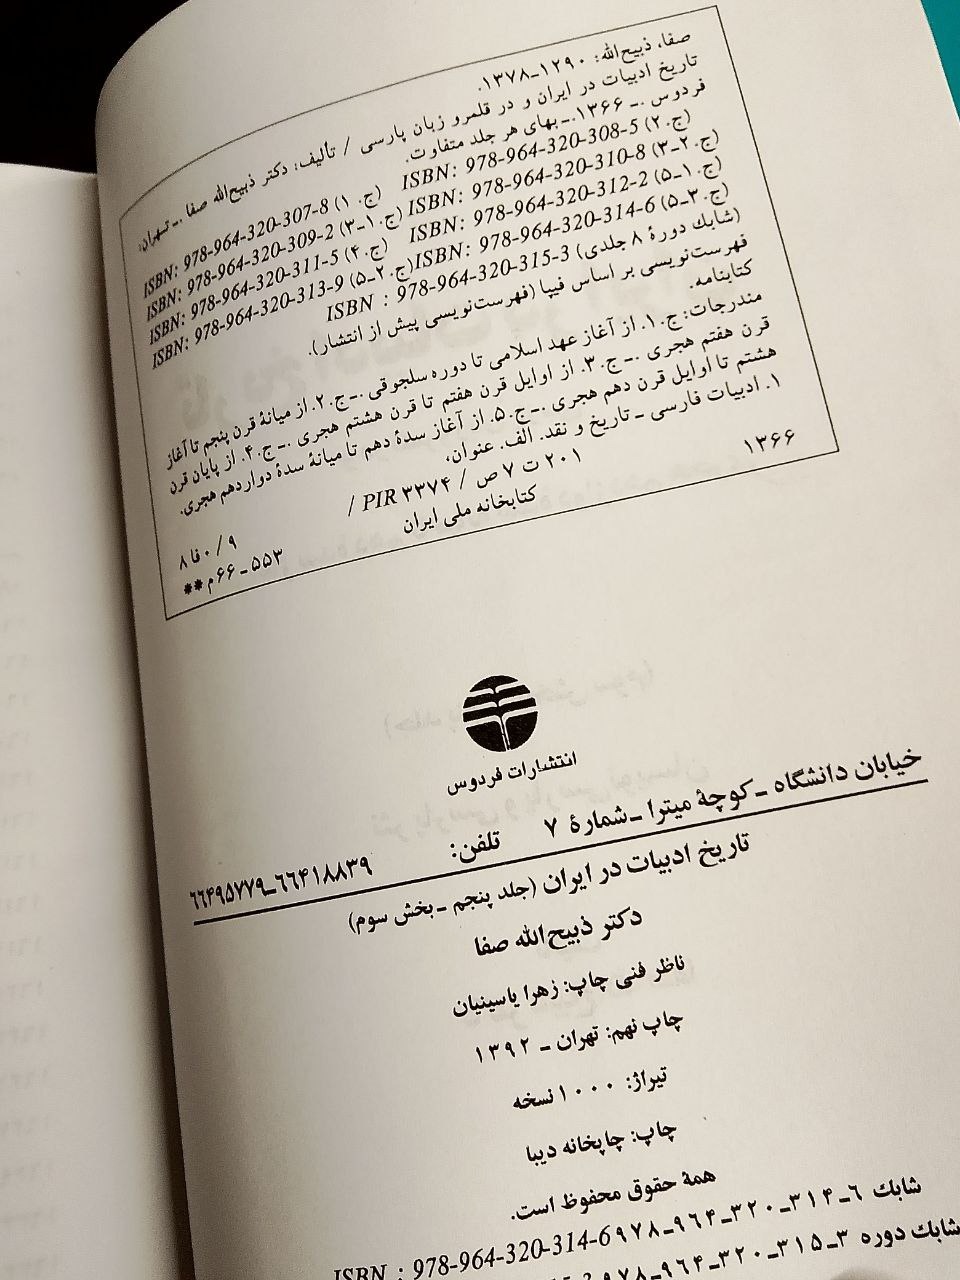 صفا، ذبیح‌الله: ۱۲۹۰ـ۱۳۷۸.
تاریخ ادبیات در ایران و در قلمرو زبان پارسی / تألیف: دکتر ذبیح‌الله صفا .ـ تهران:
فردوس .ـ ۱۳۶۶.ـ بهای هر جلد متفاوت.
ISBN: 978-964-320-307-8 (ج. ۱) ISBN: 978-964-320-308-5 (ج. ۲)
ISBN: 978-964-320-309-2 (ج. ۱ـ۳) ISBN: 978-964-320-310-8 (ج. ۲ـ۳)
ISBN: 978-964-320-311-5 (ج. ۴) ISBN: 978-964-320-312-2 (ج. ۱ـ۵)
ISBN: 978-964-320-313-9 (ج. ۲ـ۵) ISBN: 978-964-320-314-6 (ج. ۳ـ۵)
ISBN : 978-964-320-315-3 (شابك دورهٔ ۸ جلدی)
فهرست‌نویسی بر اساس فیپا (فهرست‌نویسی پیش از انتشار).
کتابنامه.
مندرجات: ج. ۱. از آغاز عهد اسلامی تا دوره سلجوقی .ـ ج. ۲. از میانهٔ قرن پنجم تا آغاز
قرن هفتم هجری .ـ ج. ۳. از اوایل قرن هفتم تا قرن هشتم هجری .ـ ج. ۴. از پایان قرن
هشتم تا اوایل قرن دهم هجری .ـ ج. ۵. از آغاز سدهٔ دهم تا میانهٔ سدهٔ دواردهم هجری.
۱. ادبیات فارسی ـ تاریخ و نقد. الف. عنوان،
۱۳۶۶ ۲۰۱ ت ۷ ص / PIR ۳۳۷۴ / ۹ / ۰ فا ۸
کتابخانه ملی ایران ۵۵۳ ـ ۶۶ م **
انتشارات فردوس
خیابان دانشگاه ـ کوچهٔ میترا ـ شمارهٔ ۷ تلفن: ۶۶۴۱۸۸۳۹ـ۶۶۴۹۵۷۷۹
تاریخ ادبیات در ایران (جلد پنجم ـ بخش سوم)
دکتر ذبیح‌الله صفا
ناظر فنی چاپ: زهرا یاسینیان
چاپ نهم: تهران ـ ۱۳۹۲
تیراژ: ۱۰۰۰ نسخه
چاپ: چاپخانه دیبا
همهٔ حقوق محفوظ است.
شابك ۶ـ۳۱۴ـ۳۲۰ـ۹۶۴ـ۹۷۸ ISBN : 978-964-320-314-6
شابك دوره ۳ـ۳۱۵ـ۳۲۰ـ۹۶۴ـ۹۷۸